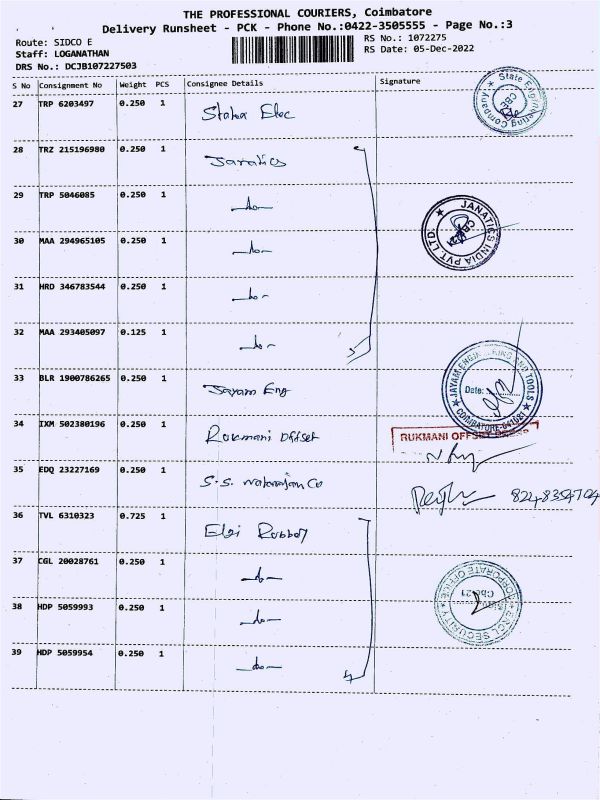 THE PROFESSIONAL COURIERS, Coimbatore
Delivery Runsheet - PCK - Phone No.:0422-3505555 - Page No.:3
Route: SIDCO E
RS No.: 1072275
Staff: LOGANATHAN
RS Date: 05-Dec-2022
DRS No.: DCJB107227503
S No Consignment No Weight PCS Consignee Details Signature
27 TRP 6203497 0.250 1 Elec
State Engineering Company CBE
28 TRZ 215196980 0.250 1
29 TRP 5046085 0.250 1 -do-
JANATICS INDIA PVT. LTD.
30 MAA 294965105 0.250 1 -do-
31 HRD 346783544 0.250 1 -do-
32 MAA 293405097 0.125 1 -do-
33 BLR 1900786265 0.250 1 Jayam Eng
JAYAM ENGINEERING AND TOOLS
Date:
COIMBATORE-641021
34 IXM 502380196 0.250 1 Rukmani Offset
RUKMANI OFFSET PRESS
35 EDQ 23227169 0.250 1 S.S. Natarajan Co
36 TVL 6310323 0.725 1 Elgi Rubber
37 CGL 20028761 0.250 1 -do-
CORPORATE OFFICE
SECURITY
38 HDP 5059993 0.250 1 -do-
39 HDP 5059954 0.250 1 -do-